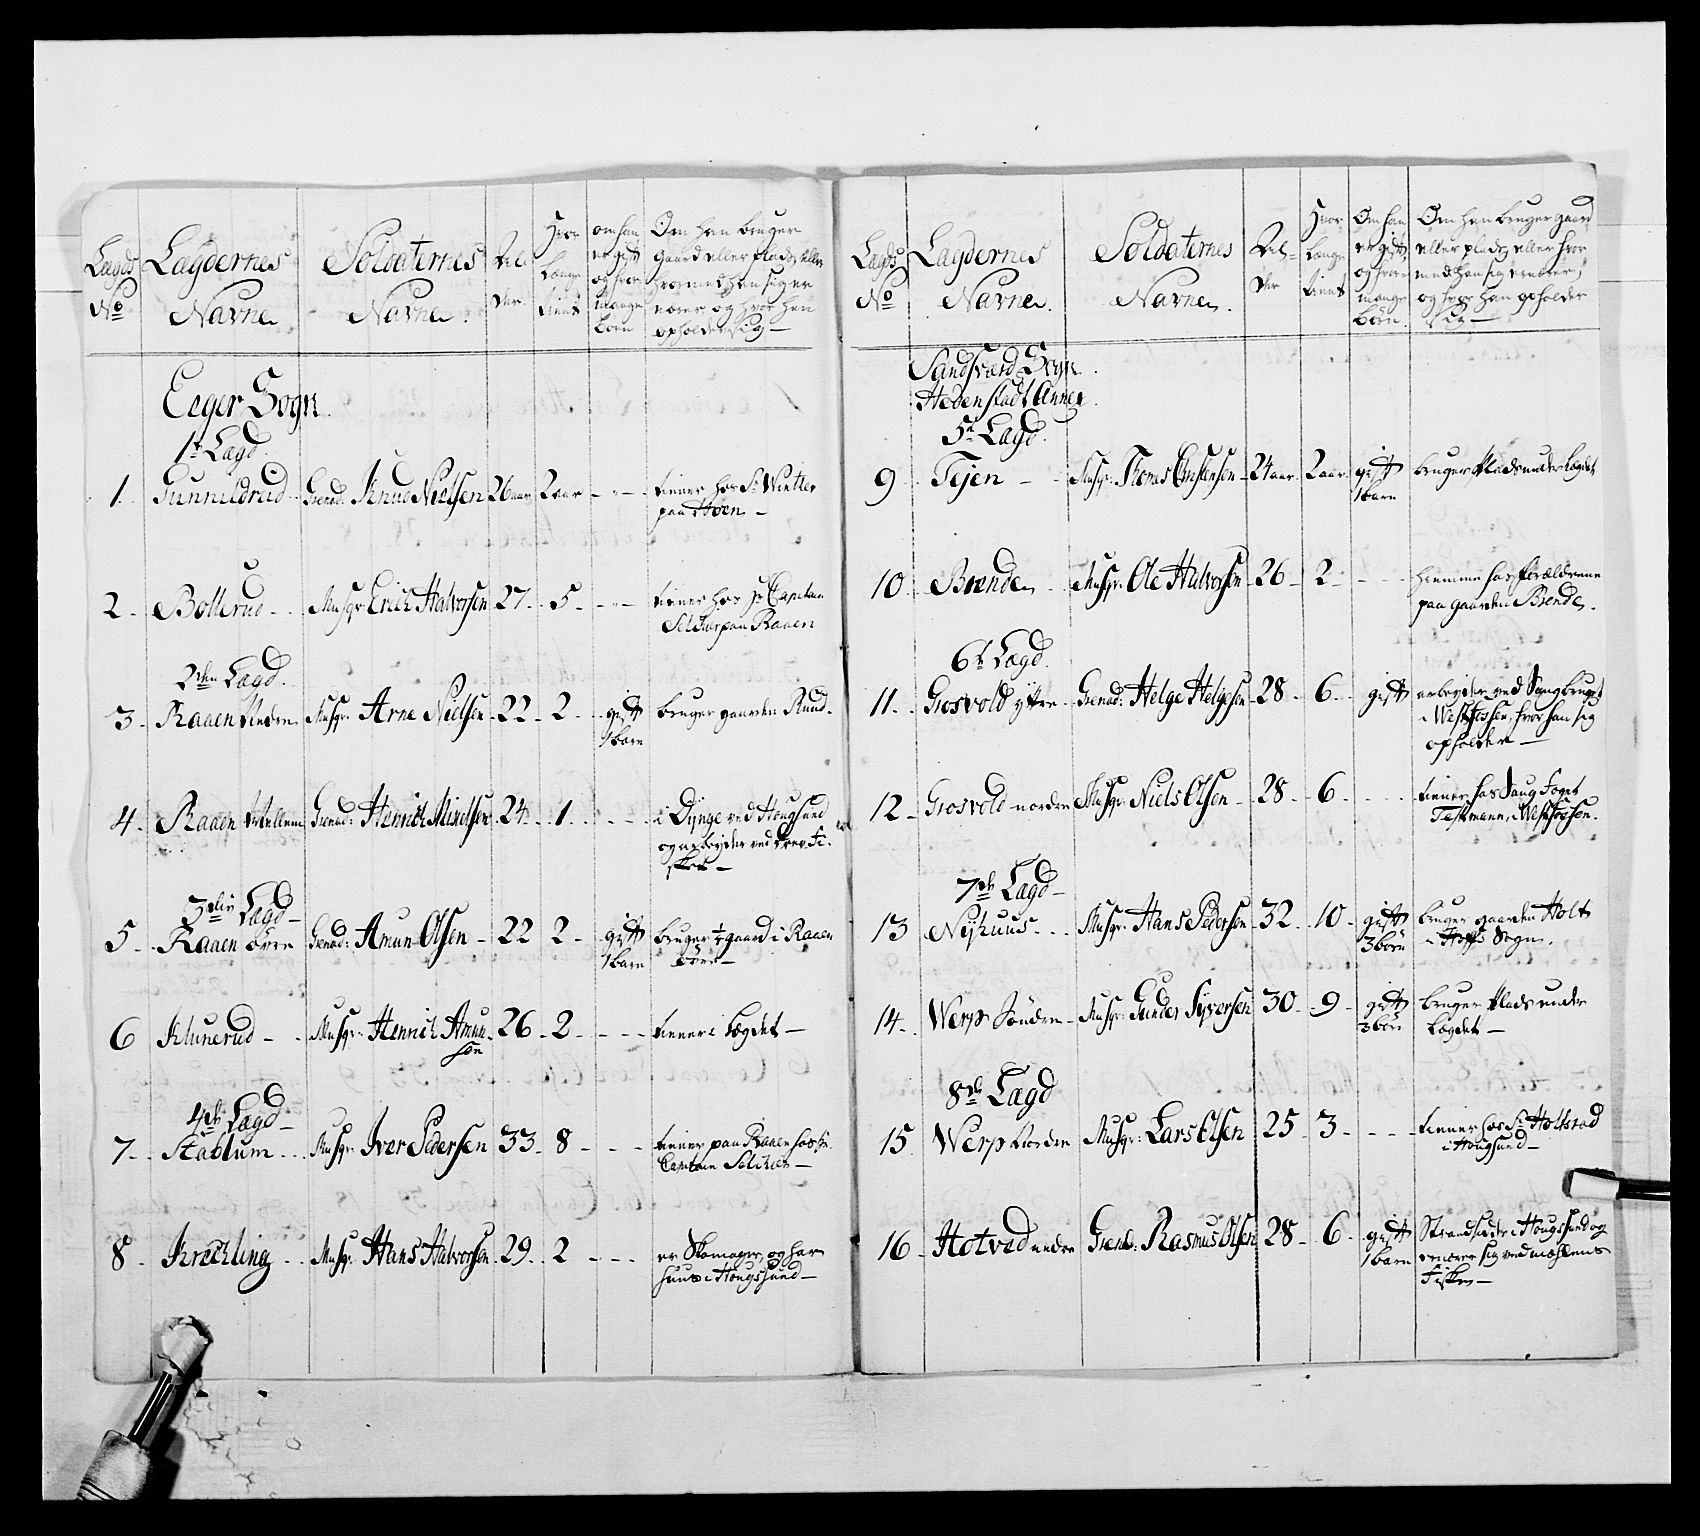 Lægds No | Lægdernes Navne | Soldaternes Navne | Al- der | Hvor længe tient | om han er gift og hvor mange børn | Om han bruger Gaard eller Plads, eller hvormed han sig er nærer, og hvor han opholder sig —
Eeger Sogn
1t Lægd
1. Gunnildrud Grenad: Knud Nielsen 26 aar 2 aar - - - tiener hos Sr Winther
paa Hoen —
2. Bollerud Musqr Erich Halvorsen 27. 5. - - - tiener hos Hr Captain
paa Raaen
2den Lægd.
3. Raaen Neder Musqr Arne Nielsen 22. 2. gift bruger gaarden Rund.
1 barn
4. Raaen Mellem Grenad: Henrich 24. 1. - - - i Dynge ved Hougsund
og arbeyder ved
3die Lægd
5. Raaen øvre Grenad: Amun Olsen 22 2 gift bruger ½ gaard i Raaen
1 barn øvre —
6 Klunerud Musqr Henrich Amun- 26. 2. - - - tiener i Lægdet —
sen
4de Lægd
7. Stablum Musqr Iver Pedersen 33. 8 - - - tiener paa Raaen hos Hr
Captain
8. Krechling Musqr Hans Halvorsen 29. 2 - - - er Skomager, og har
huus i Hougsund —
Lægds No | Lægdernes Navne. | Soldaternes Navne. | Al- der | Hvor længe tient | Om han er gift og hvor mange børn. | Om han bruger gaard eller plads, eller hvor med han sig ernærer, og hvor han opholder sig —
Sandsværd Sogn.
Hedenstadt Annex.
5t Lægd.
9 Tejen Musqr: 24 aar 2 aar gift bruger Plads under Lægdet
1 barn
10. Brende Musqr: Ole Halvorsen 26. 2. - - - hiemme hos forældrene
paa gaarden Brende.
6t Lægd.
11. Grosvold yttre Grenad: Helge Helgesen 28. 6. gift arbeyder ved Saugbruget
i Westfossen, hvor han sig
opholder —
12. Grosvold nordre Musqr: Niels Olsen 28. 6. - - - tiener hos Saug Foget
i Westfossen.
7de Lægd
13 Nyhuus Musqr: Hans Pedersen 32. 10. gift bruger gaarden Holt
3 børn i Sogn.
14. Werp Søndre Musqr: Gunder Syversen 30. 9. gift bruger Plads under
3 børn Lægdet —
8de Lægd
15. Werp Nordre Musqr: Lars Olsen 25 3. - - - tiener hos Sr
i Hougsund —
16. Hotved nedre Grend: Rasmus Olsen 28 6. gift Strandsidder i Hougsund og
1 barn ernærer sig ved
Fisken —